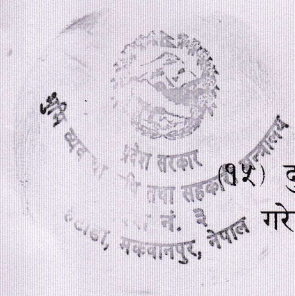 प्रदेश सरकार
भूमि व्यवस्था कृषि तथा सहकारी मन्त्रालय
प्रदेश नं. ३
हेटौंडा, मकवानपुर, नेपाल
(१५) दु
गरे